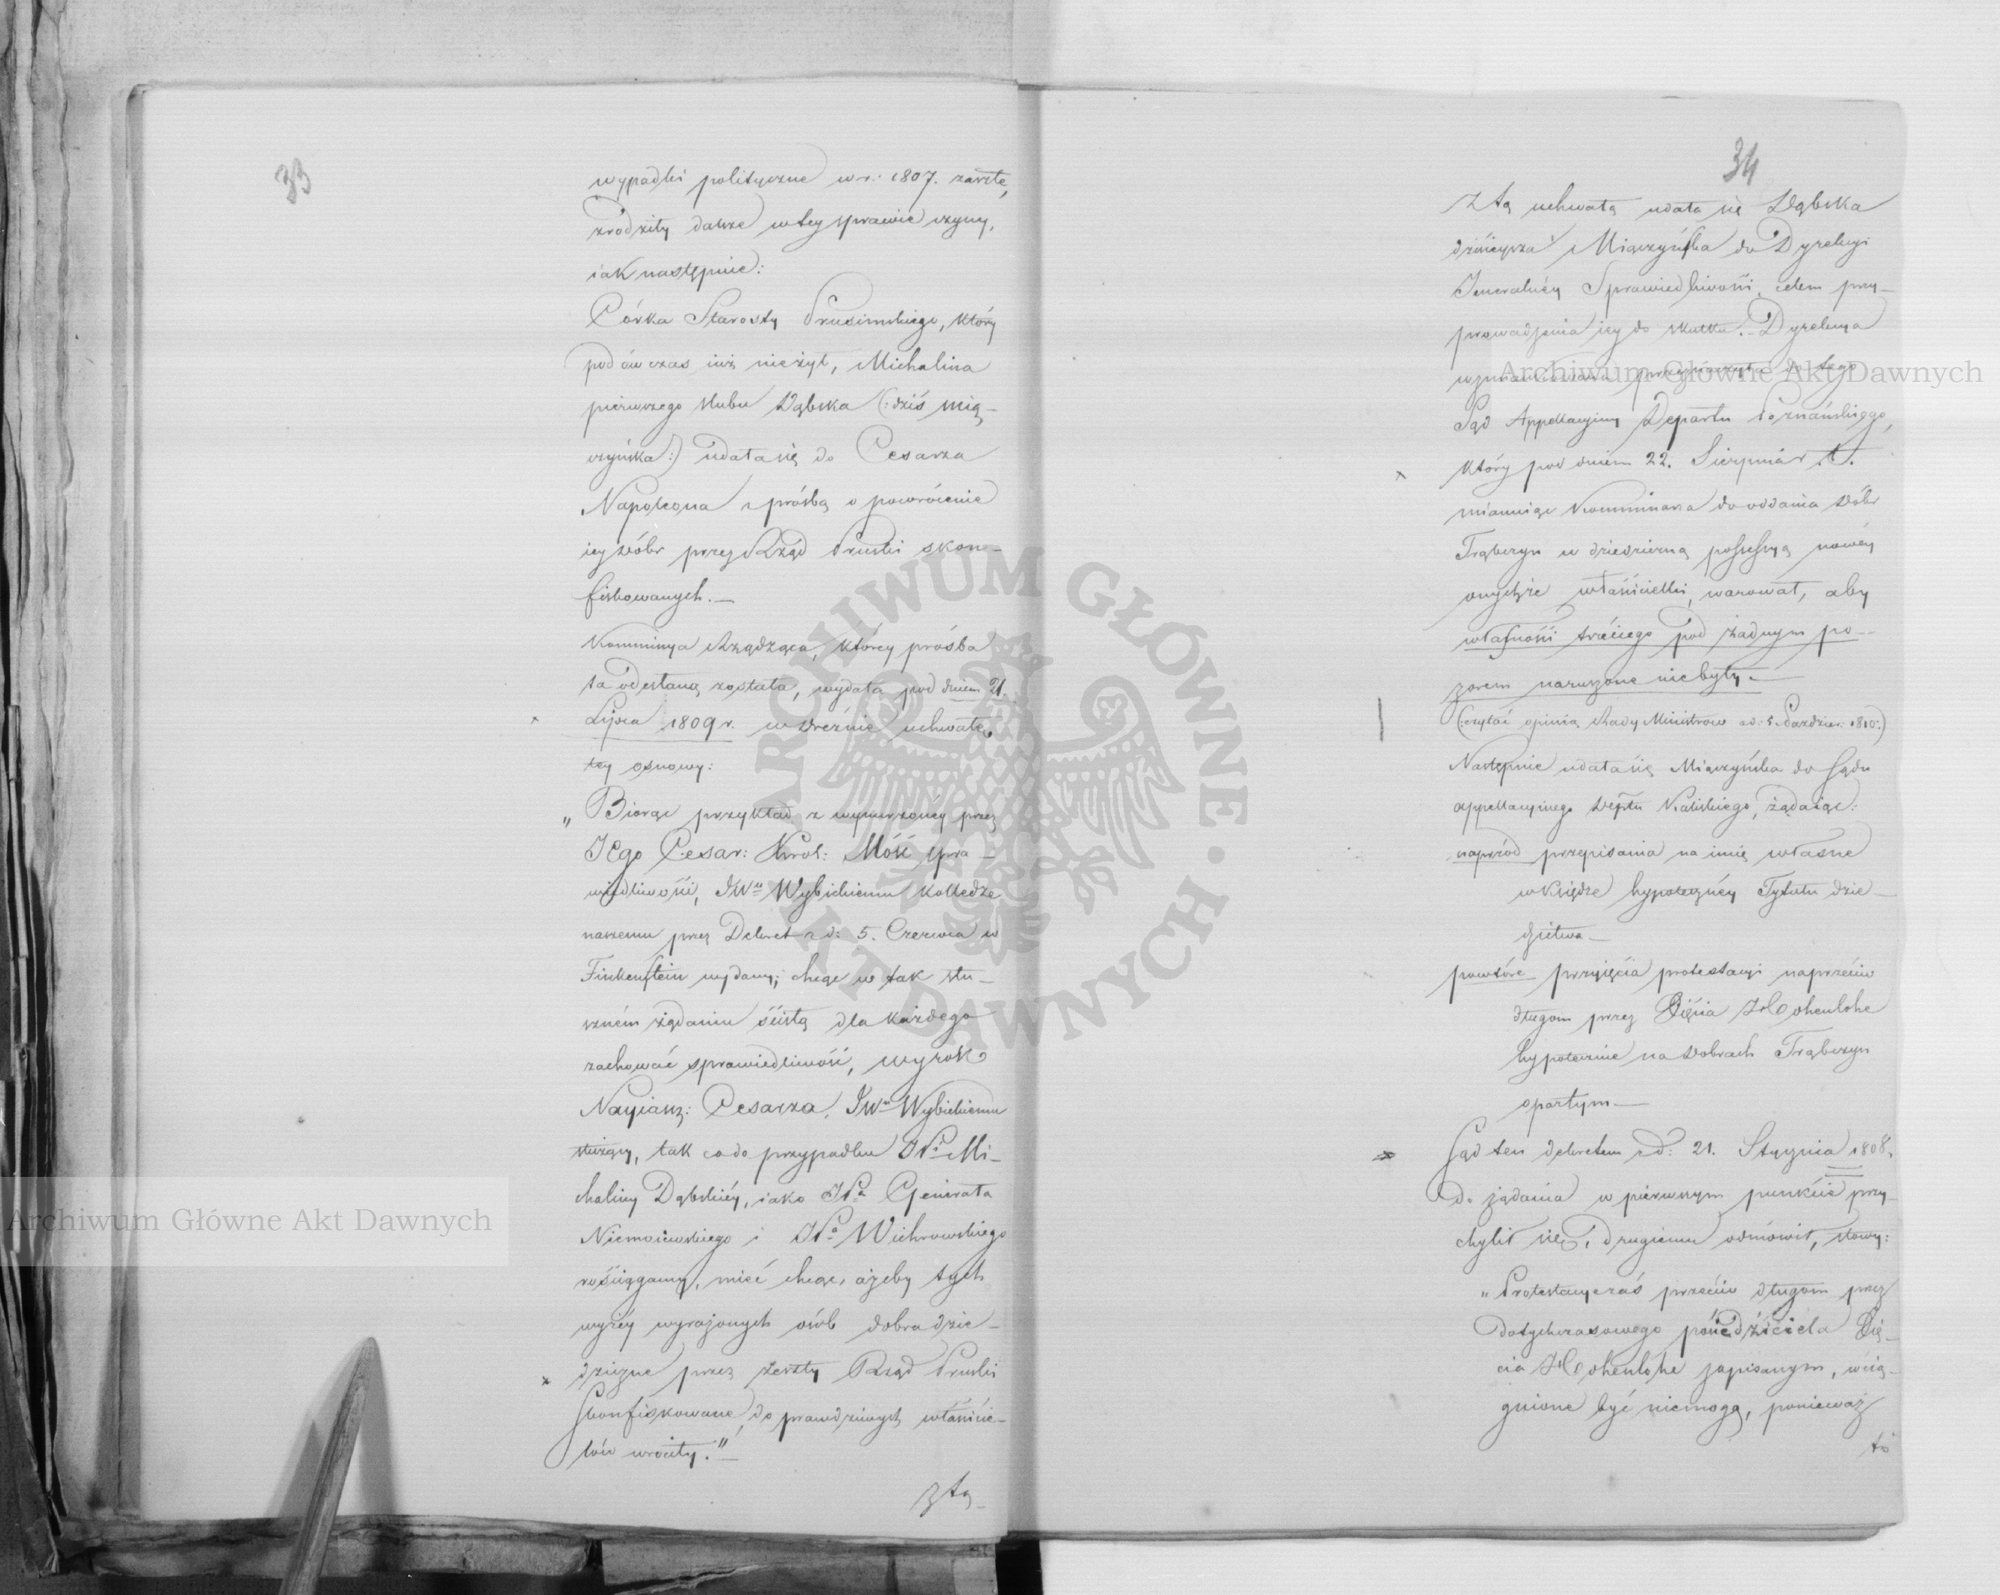 33
wypadki polityczne w r: 1807. zaszłe,
zrodziły dalsze w tey sprawie czyny,
iak następnie:
Córka Starosty Prusimskiego, który
podówczas iuż nieżył, Michalina
pierwszego ślubu Dąbska (: dziś Mią-
czyńska :) udała się do Cesarza
Napoleona z prośbą o powrócenie
iey dóbr przez Rząd Pruski skon-
fiskowanych. —
Kommissya Rządząca, którey prośba
ta odesłaną została, wydała pod dniem 21.
Lipca 1809 r. w Dreźnie uchwałę
tey osnowy:
„Biorąc przykład z wymierzonéy przez
JEgo Cesar: Król: Mość spra-
wiedliwości, JWu Wybickiemu kolledze
naszemu przez Dekret z d: 5. Czerwca w
Finkenstein wydany; chcąc w tak słu-
szném żądaniu ścisłą dla każdego
zachować sprawiedliwość, wyrok
Nayiaśn: Cesarza, JWu Wybickiemu
służący, tak co do przypadku WPi Mi-
chaliny Dąbskiéy, iako WPa Generała
Niemoiewskiego i WPa Wichrowskiego
rościągamy, mieć chcąc, ażeby tych
wyżéy wyrażonych osób dobra dzie-
dziczne przez zeszły Rząd Pruski
skonfiskowane, do prawdziwych właścicie-
lów wróciły." —
z tą
34
Z tą uchwałą udała się Dąbska
dzisieysza Miączyńska do Dyrekcyi
Jeneralnéy Sprawiedliwości, celem przy-
prowadzenia iey do skutku. Dyrekcya
wzmiankowana przeznaczyła do tego
Sąd Appellacyiny Departu Poznańskiego,
który pod dniem 22. Sierpnia r. t.
mianuiąc Kommissarza do oddania dóbr
Trąbczyn w dziedziczną possessyą nowéy
onychże właścicielki, warował, aby
własności trzeciego pod żadnym po-
zorem naruszone niebyły. —
(: czytać opinią Rady Ministrów z d: 5. Paździer: 1810 :)
Następnie udała się Miączyńska do Sądu
appellacyinego Deptu Kaliskiego, żądaiąc:
naprzód przepisania na imię własne
w Księdze hypoteczney Tytułu dzie-
dzictwa —
powtóre przyięcia protestacyi naprzeciw
długom przez Xięcia Hohenlohe
hypotecznie na dobrach Trąbczyn
opartym —
Sąd ten dekretem z d: 21. Stycznia 1808.
do żądania w pierwszym punkcie przy-
chylił się, drugiemu odmówił, słowy:
„Protestacya zaś przeciw długom przez
dotychczasowego posiedziciela Xię-
cia Hohenlohe zapisanym, wcią-
gnione być niemogą, ponieważ
to
Archiwum Główne Akt Dawnych
Archiwum Główne Akt Dawnych
ARCHIWUM GŁÓWNE · AKT DAWNYCH ·